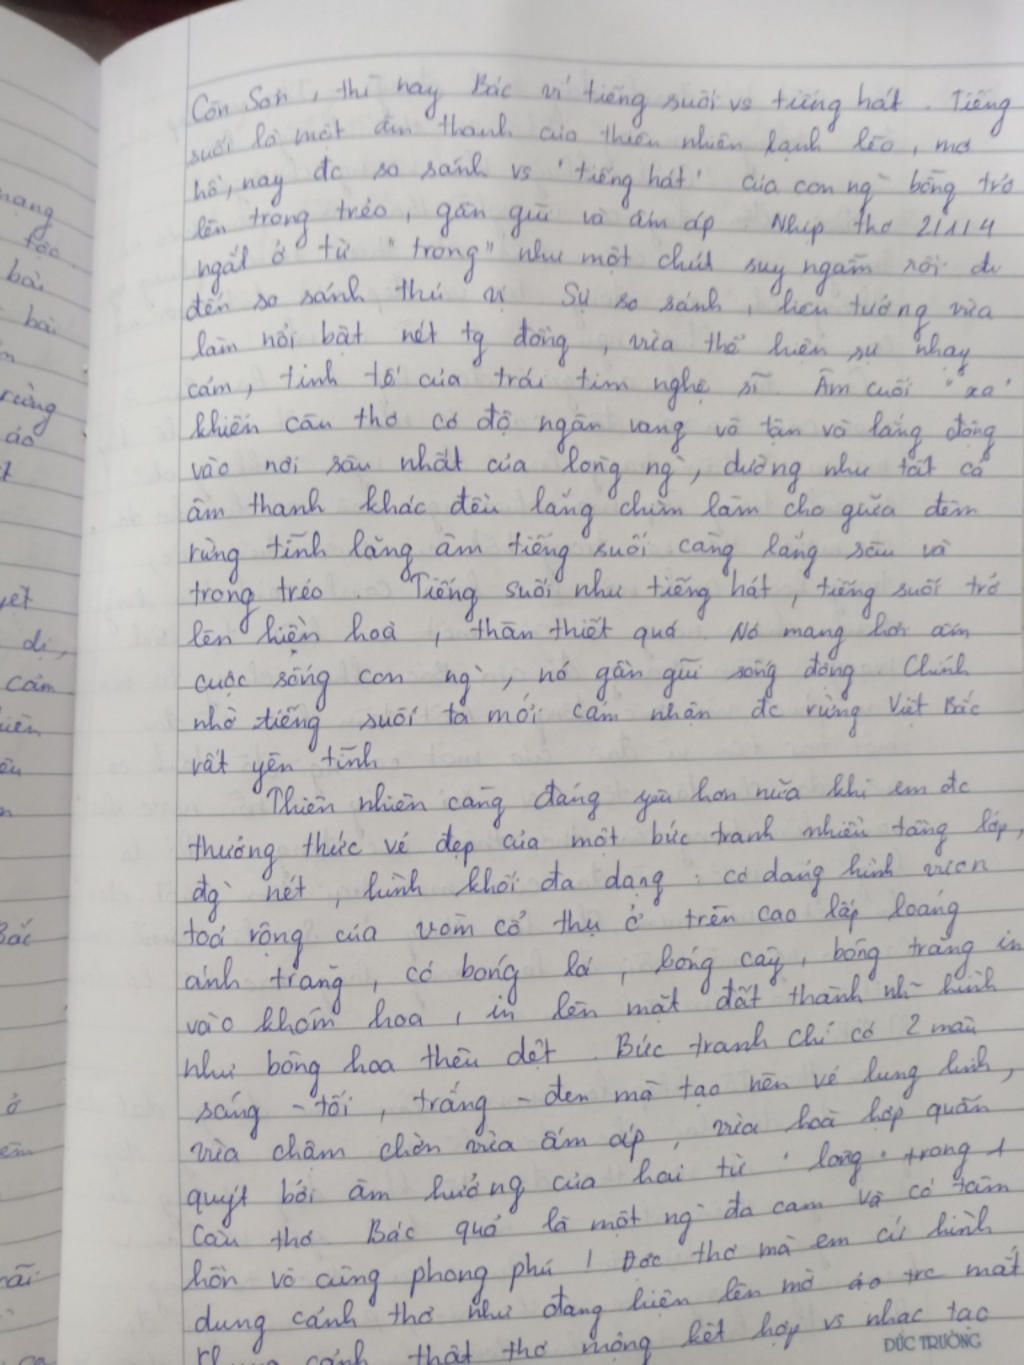 Côn Sơn, thì nay Bác ví tiếng suối vs tiếng hát. Tiếng
suối là một âm thanh của thiên nhiên lạnh lẽo, mơ
hồ, nay đc so sánh vs "tiếng hát" của con ng` bỗng trở
lên trong trẻo, gần gũi và ấm áp. Nhịp thơ 2/1/4
ngắt ở từ "trong" như một chút suy ngẫm rồi đi
đến so sánh thú vị. Sự so sánh, liên tưởng vừa
làm nổi bật nét tg đồng, vừa thể hiện sự nhạy
cảm, tinh tế của trái tim nghệ sĩ. Âm cuối "xa"
khiến câu thơ có độ ngân vang vô tận và lắng đọng
vào nơi sâu nhất của lòng ng`, dường như tất cả
âm thanh khác đều lắng chìm làm cho giữa đêm
rừng tĩnh lặng âm tiếng suối càng lắng sâu và
trong trẻo. Tiếng suối như tiếng hát, tiếng suối trở
lên hiền hoà, thân thiết quá. Nó mang hơi ấm
cuộc sống con ng`, nó gần gũi sống động. Chính
nhờ tiếng suối ta mới cảm nhận đc rừng Việt Bắc
rất yên tĩnh.
Thiên nhiên càng đáng yêu hơn nữa khi em đc
thưởng thức vẻ đẹp của một bức tranh nhiều tầng lớp,
đg` nét, hình khối đa dạng: có dáng hình vươn
toả rộng của vòm cổ thụ ở trên cao lấp loáng
ánh trăng, có bóng lá, bóng cây, bóng trăng in
vào khóm hoa, in lên mặt đất thành nh~ hình
như bông hoa thêu dệt. Bức tranh chỉ có 2 màu
sáng - tối, trắng - đen mà tạo nên vẻ lung linh,
vừa chập chờn vừa ấm áp, vừa hoà hợp quấn
quýt bởi âm hưởng của hai từ "lồng" trong 1
câu thơ. Bác quả là một ng` đa cảm và có tâm
hồn vô cùng phong phú! Đọc thơ mà em cứ hình
dung cảnh thơ như đang hiện lên mờ ảo trc mắt
cảnh thật thơ mộng kết hợp vs nhạc tạo
ĐỨC TRƯỜNG
mang
tộc.
bài
bài
rừng
áo
yết
dị,
cảm
Bắc
ở